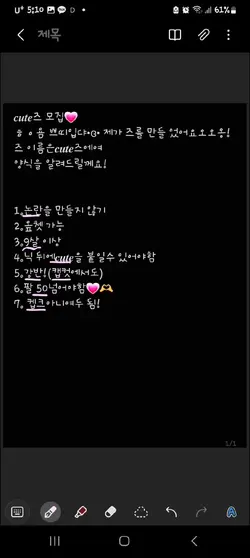 U⁺ 5:10
61%
제목
cute즈 모집💗
ㅎㅇ욤 쁘띠입댜•ɞ• 제가 즈를 만들었어요오오옹!
즈 이름은cute즈에여
양식을 알려드릴께요!
1. 논란을 만들지 않기
2. 욮쳇 가능
3. 9살 이상
4. 닉 뒤에cute을 붙일수 있어야함
5. 강반!(캡컷에서도)
6. 팔 50넘어야함💗🫶
7. 켐크아니여두 됨!
1/1